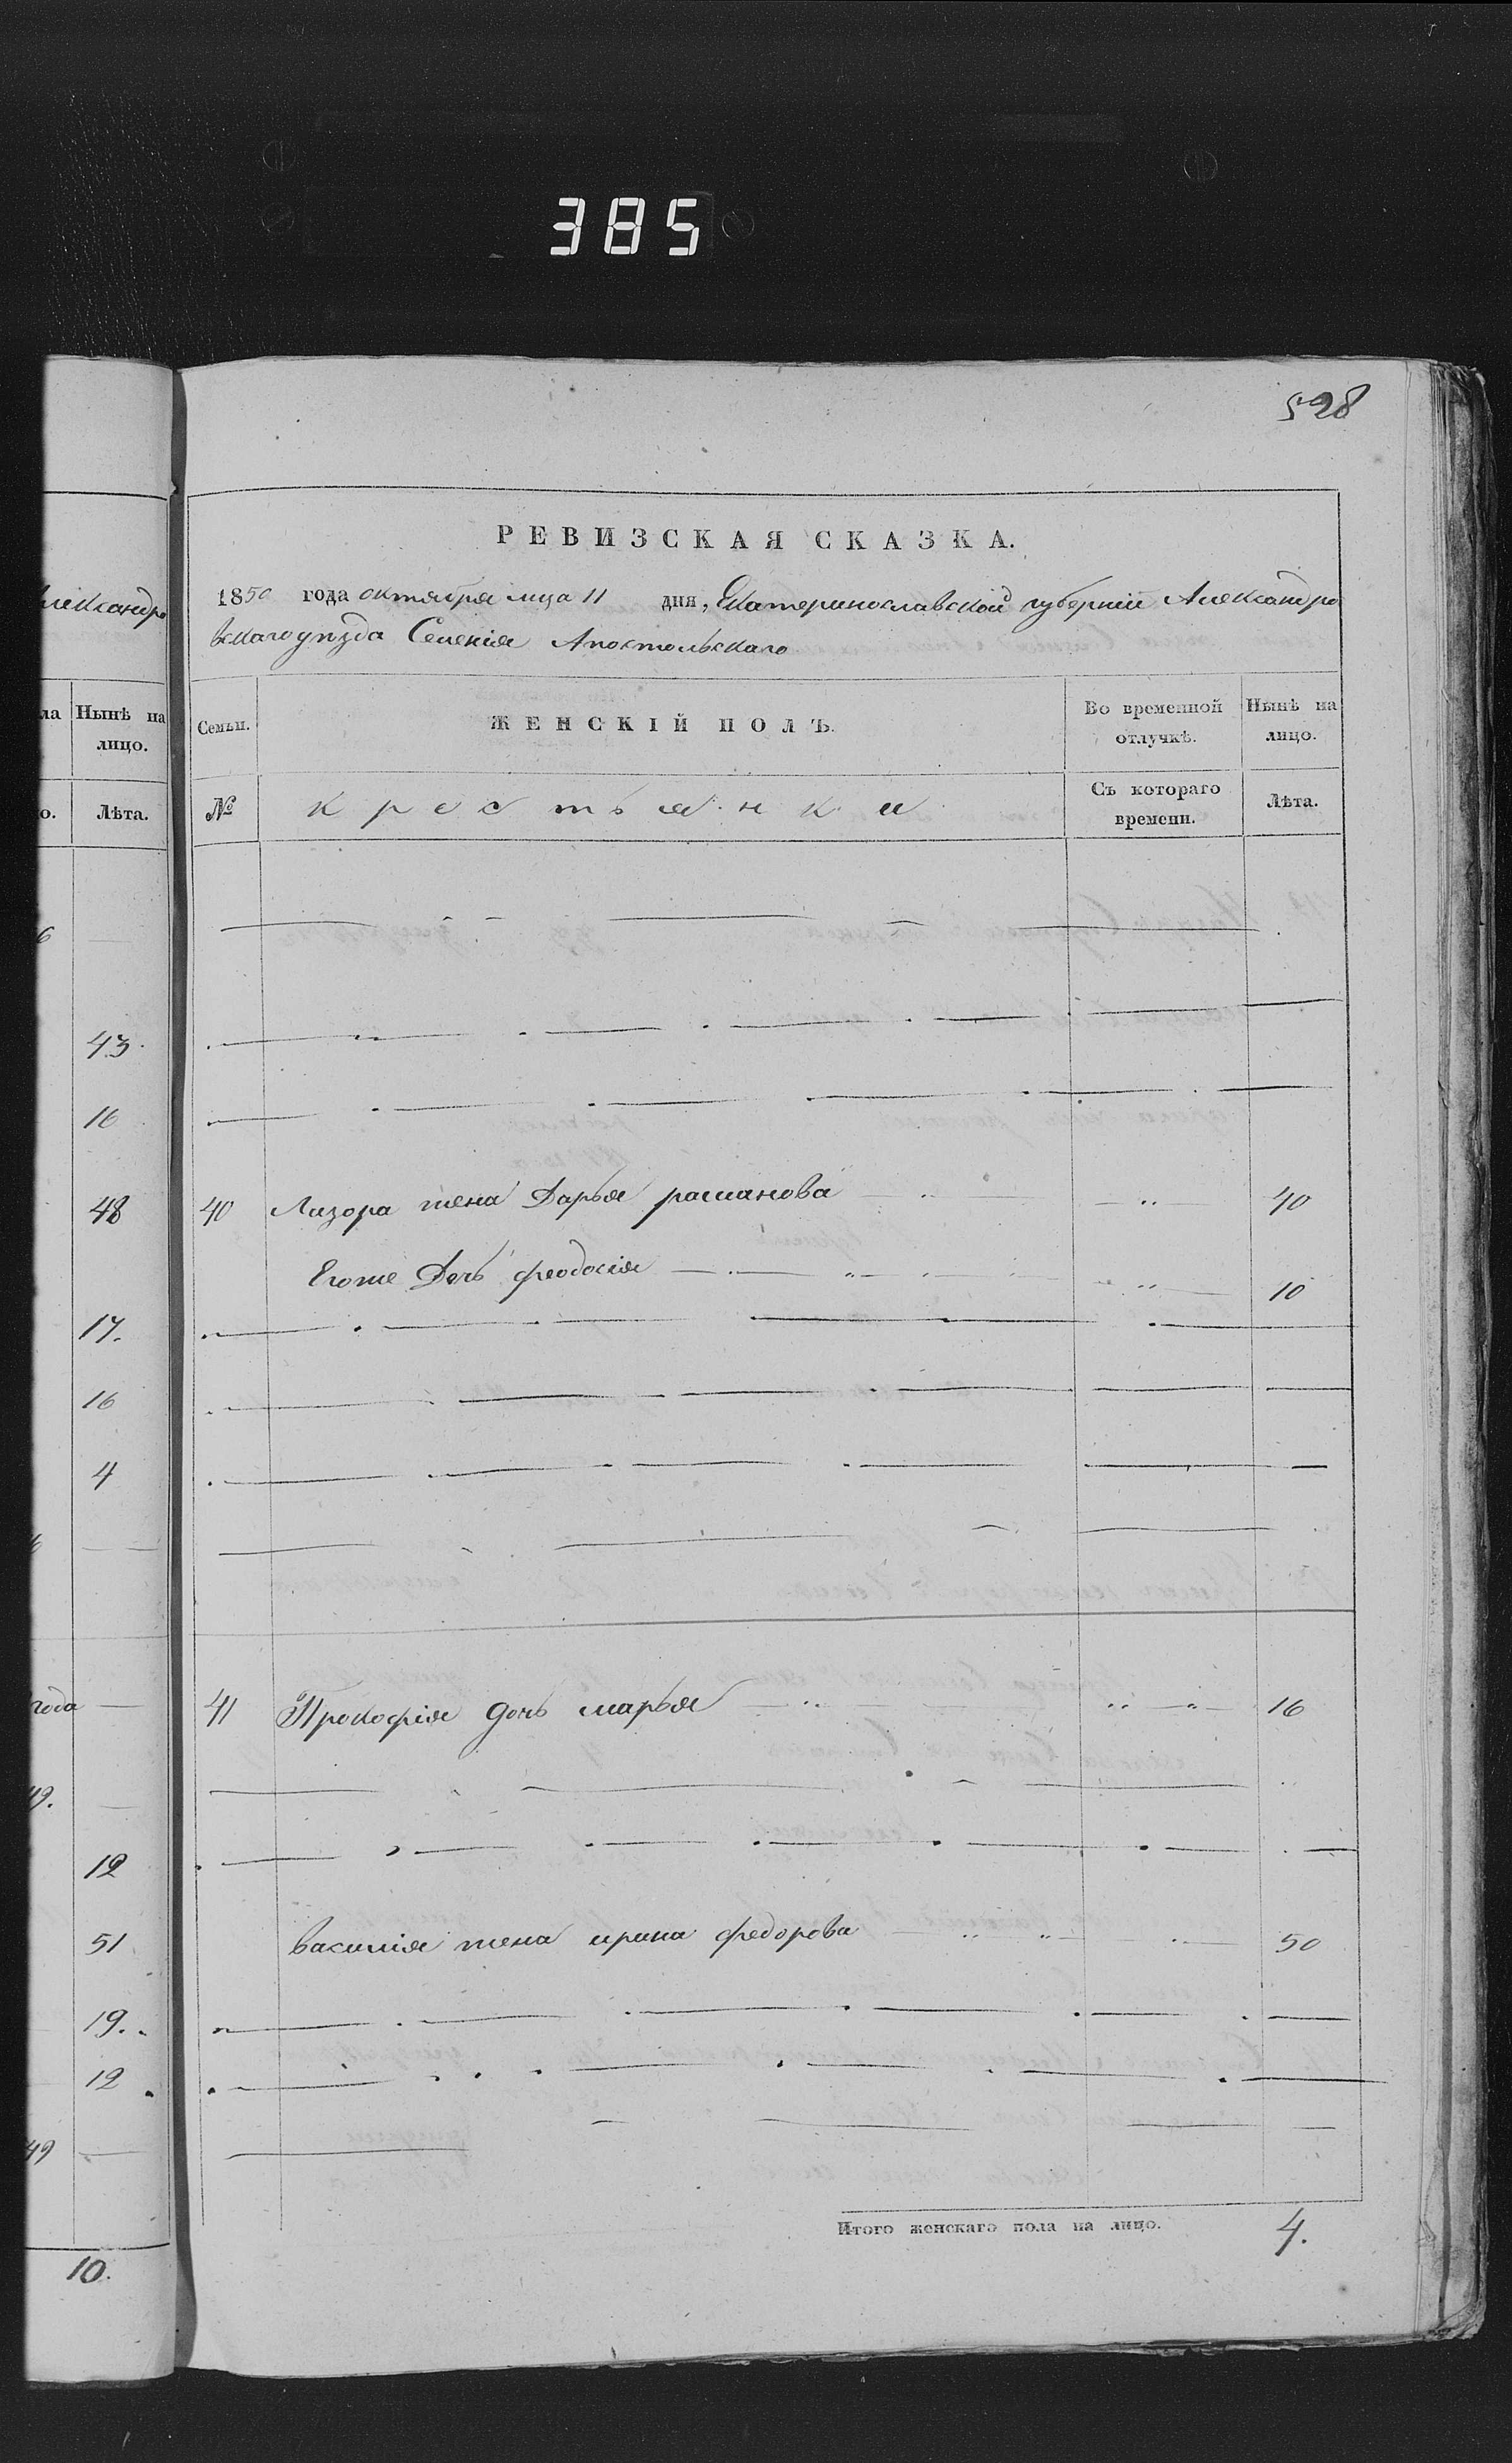 385
528
лександро
ла Нынѣ на лицо.
о. Лѣта.
6
43.
16
48
17.
16
4
года
49.
12
51
19.
12
49
10.
РЕВИЗСКАЯ СКАЗКА.
1850 года октября мца 11 дня, Екатеринославской губерніи Александро
вскаго уѣзда Селенія Апостольскаго
Семьи. ЖЕНСКІЙ ПОЛЪ. Во временной отлучкѣ. Нынѣ на лицо.
№ крестьянки Съ котораго времени. Лѣта.
40 Лизора жена Дарья романова 40
Егоже Дочь феодосія 10
41 Прокофія дочь марья 16
василія жена ирина федорова 50
Итого женскаго пола на лицо. 4.